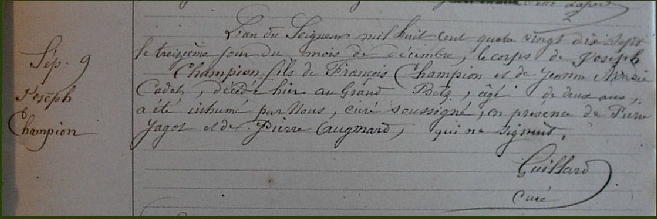 L'an du Seigneur mil huit cent quatre vingt dix Sept
Sep. 9
le treizième jour du mois de décembre, le corps de Joseph
Joseph
Champion fils de François Champion et de Jeanne Marie
Champion
Cadet, décédé hier au Grand Betz, âgé de deux ans,
a été inhumé par Nous, curé soussigné, en présence de Pierre
Jagot et de Pierre Caugnard, qui ne signent.
Guillard
curé